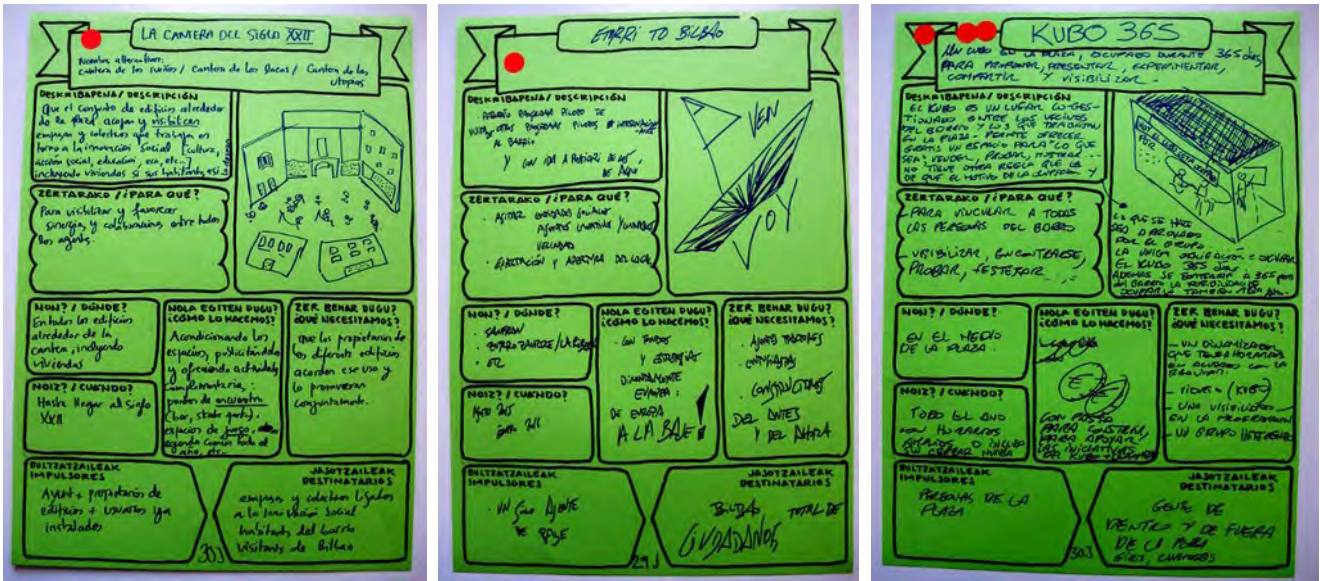 LA CANTERA DEL SIGLO XXII
Nombres alternativos:
cantera de los sueños / Cantera de las Ducas / Cantera de las
utopías
DESKRIBAPENA / DESCRIPCIÓN
Que el conjunto de edificios alrededor
de la plaza acojan y visibilicen
empresas y colectivos que trabajan en
torno a la innovación social [cultura,
acción social, educación, eco, etc...]
incluyendo viviendas si sus habitantes así
ZERTARAKO / ¿PARA QUÉ?
Para visibilizar y favorecer
sinergias y colaboraciones entre todos
los agentes.
NON? / DÓNDE?
En todos los edificios
alrededor de la
cantera, incluyendo
viviendas
NOIZ? / CUÁNDO?
Hasta llegar al siglo
XXII
NOLA EGITEN DUGU?
¿CÓMO LO HACEMOS?
Acondicionando los
espacios, publicitándolos
y ofreciendo actividades
complementarias:
puntos de encuentro
(bar, skate park),
espacios de juego,
agenda común todo el
año, etc...
ZER BEHAR DUGU?
¿QUÉ NECESITAMOS?
que los propietarios de
los diferentes edificios
acorden ese uso y
lo promuevan
conjuntamente.
BULTZATZAILEAK
IMPULSORES
Ayunt + propietarios de
edificios + usuarios ya
instalados
JASOTZAILEAK
DESTINATARIOS
empresas y colectivos ligados
a la innovación social
habitantes del barrio
visitantes de Bilbao
30J
ETORRI TO BILBAO
DESKRIBAPENA / DESCRIPCIÓN
PROGRAMA PILOTO DE
OTROS PROGRAMAS PILOTOS
AL BARRIO
Y CON IDA A
DE AQUÍ
VEN
Y
VOY
ZERTARAKO / ¿PARA QUÉ?
VECINDAD
Y APERTURA DEL LOCAL
NON? / DÓNDE?
· ETC
NOIZ? / CUÁNDO?
2015
2016
NOLA EGITEN DUGU?
¿CÓMO LO HACEMOS?
· CON FONDOS
Y ESTRATEGIAS
EUROPEA:
DE EUROPA
A LA BASE!
ZER BEHAR DUGU?
¿QUÉ NECESITAMOS?
· AGENTES TRACTORES
· CONSTRUCTORES
DEL ANTES
Y DEL AHORA
BULTZATZAILEAK
IMPULSORES
· UN SOLO AGENTE
DE BASE
JASOTZAILEAK
DESTINATARIOS
BILBAO TOTAL DE
CIUDADANOS
29J
KUBO 365
UN CUBO EN LA PLAZA, OCUPADO DURANTE 365 días,
PARA PROPONER, PRESENTAR, EXPERIMENTAR,
COMPARTIR Y VISIBILIZAR.
DESKRIBAPENA / DESCRIPCIÓN
EL KUBO ES UN LUGAR CO-GES-
TIONADO ENTRE LOS VECINOS
DEL BARRIO Y LOS QUE TRABAJAN
EN LA PLAZA. PERMITE OFRECER
GRATIS UN ESPACIO PARA "LO QUE
SEA": VENDER, PROBAR, MOSTRAR...
NO TIENE OTRA REGLA QUE LA
DE QUE EL MOTIVO DE LA Y
HOY EL KUBO ESTÁ
POR
LO QUE SE HACE
SEA APROBADO
POR EL GRUPO.
LA UNICA OBLIGACION = OCUPAR
EL KUBO 365 días.
ADEMAS SE A 365 pers
del BARRIO LA POSIBILIDAD DE
OCUPARLO TAMBIEN
ZERTARAKO / ¿PARA QUÉ?
- PARA VINCULAR A TODAS
LAS PERSONAS DEL BARRIO
- VISIBILIZAR, ENCONTRARSE,
PROBAR, FESTEJAR ...
NON? / DÓNDE?
EN EL MEDIO
DE LA PLAZA.
NOIZ? / CUÁNDO?
TODO EL AÑO
CON HORARIOS
O INCLUSO
SIN CERRAR NUNCA
NOLA EGITEN DUGU?
¿CÓMO LO HACEMOS?
CON PASTA
PARA CONSTRUIR,
PARA APOYAR
LAS INICIATIVAS
ZER BEHAR DUGU?
¿QUÉ NECESITAMOS?
- UN DINAMIZADOR
QUE TENGA HORARIOS
EN ACUERDO CON LA
- (KUBO)
- UNA VISIBILIDAD
EN LA PROGRAMACION
- UN GRUPO HETEROGENEO
BULTZATZAILEAK
IMPULSORES
PERSONAS DE LA
PLAZA
JASOTZAILEAK
DESTINATARIOS
GENTE DE
DENTRO Y DE FUERA
DE LA
30J